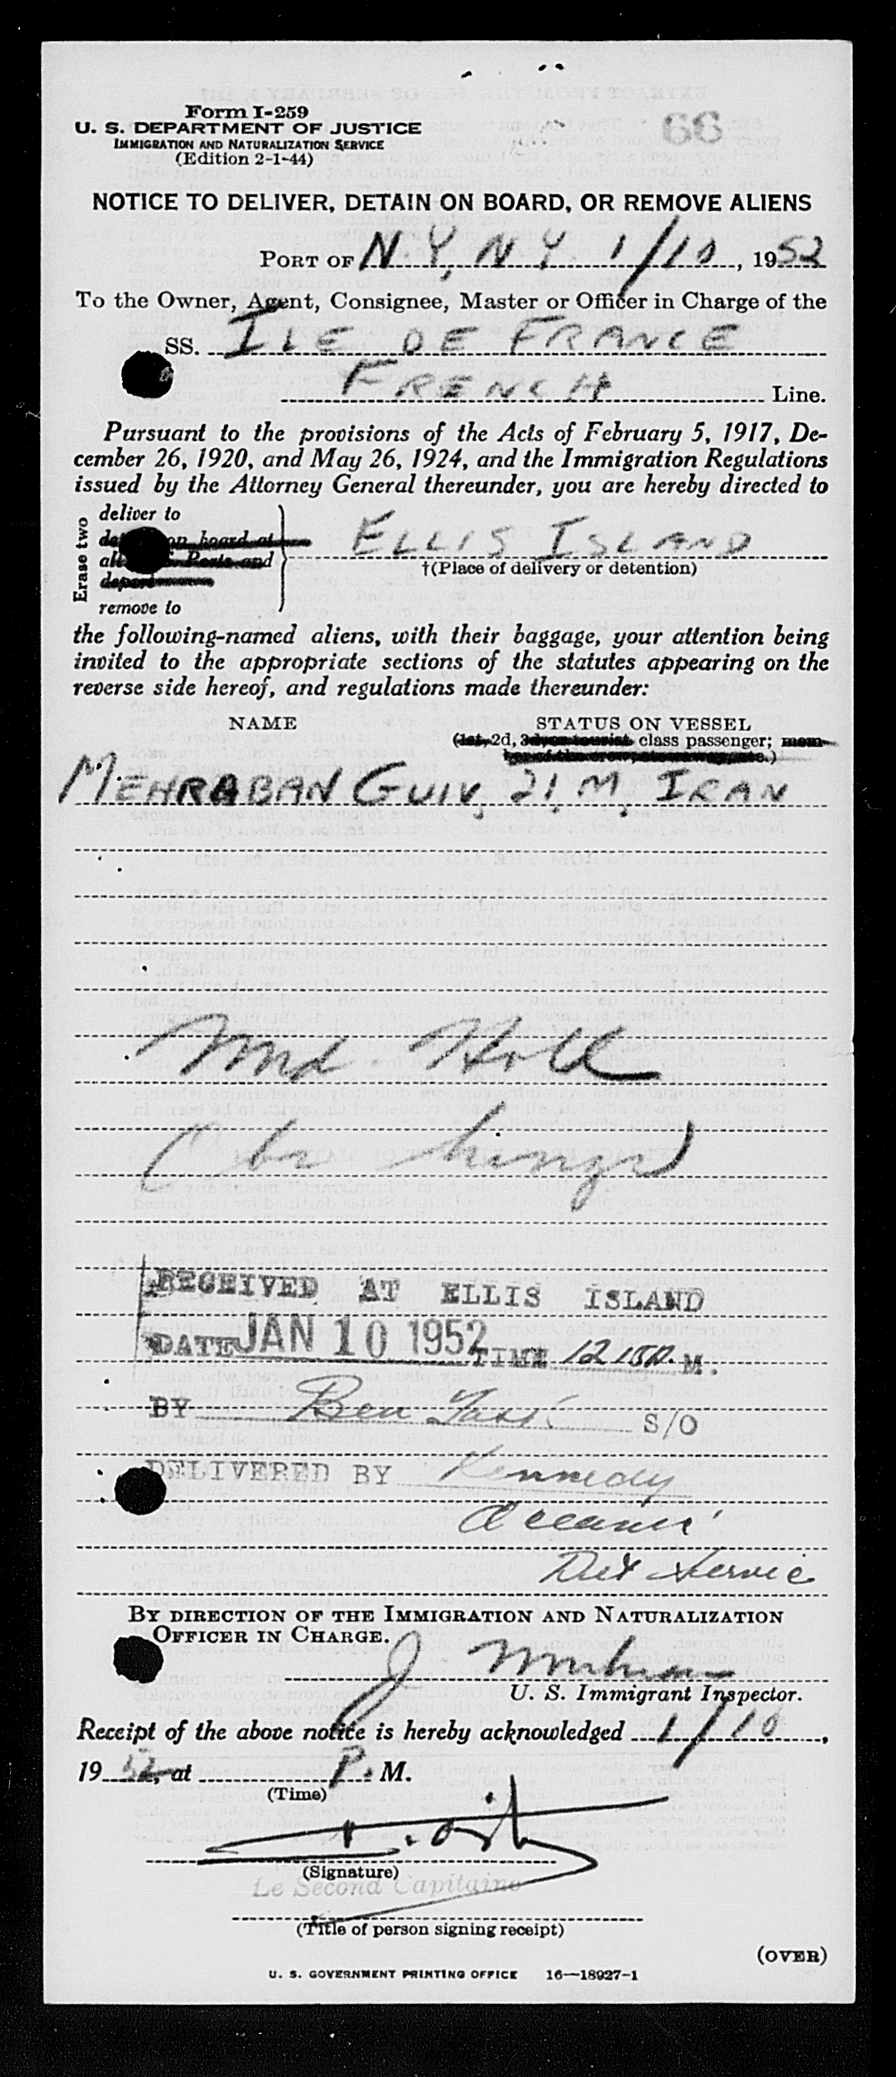 66
Form I-259
U. S. DEPARTMENT OF JUSTICE
IMMIGRATION AND NATURALIZATION SERVICE
(Edition 2-1-44)
NOTICE TO DELIVER, DETAIN ON BOARD, OR REMOVE ALIENS
PORT OF N.Y., N Y 1/10, 1952
To the Owner, Agent, Consignee, Master or Officer in Charge of the
SS. ILE DE FRANCE
FRENCH Line.
Pursuant to the provisions of the Acts of February 5, 1917, De-
cember 26, 1920, and May 26, 1924, and the Immigration Regulations
issued by the Attorney General thereunder, you are hereby directed to
Erase two
deliver to
on board at
all Ports and
depart
remove to
ELLIS ISLAND
†(Place of delivery or detention)
the following-named aliens, with their baggage, your attention being
invited to the appropriate sections of the statutes appearing on the
reverse side hereof, and regulations made thereunder:
NAME STATUS ON VESSEL
(1st, 2d, class passenger; mem-
MEHRABAN GUIV, 21, M, IRAN
Hold
RECEIVED AT ELLIS ISLAND
DATE JAN 10 1952 TIME 12 15 P. M.
BY Ben S/O
DELIVERED BY Kennedy
Oceanic
Det Service
BY DIRECTION OF THE IMMIGRATION AND NATURALIZATION
OFFICER IN CHARGE.
J
U. S. Immigrant Inspector.
Receipt of the above notice is hereby acknowledged 1/10,
1952, at P. M.
(Time)
(Signature)
Le Second Capitaine
(Title of person signing receipt)
(OVER)
U. S. GOVERNMENT PRINTING OFFICE 16—18927-1